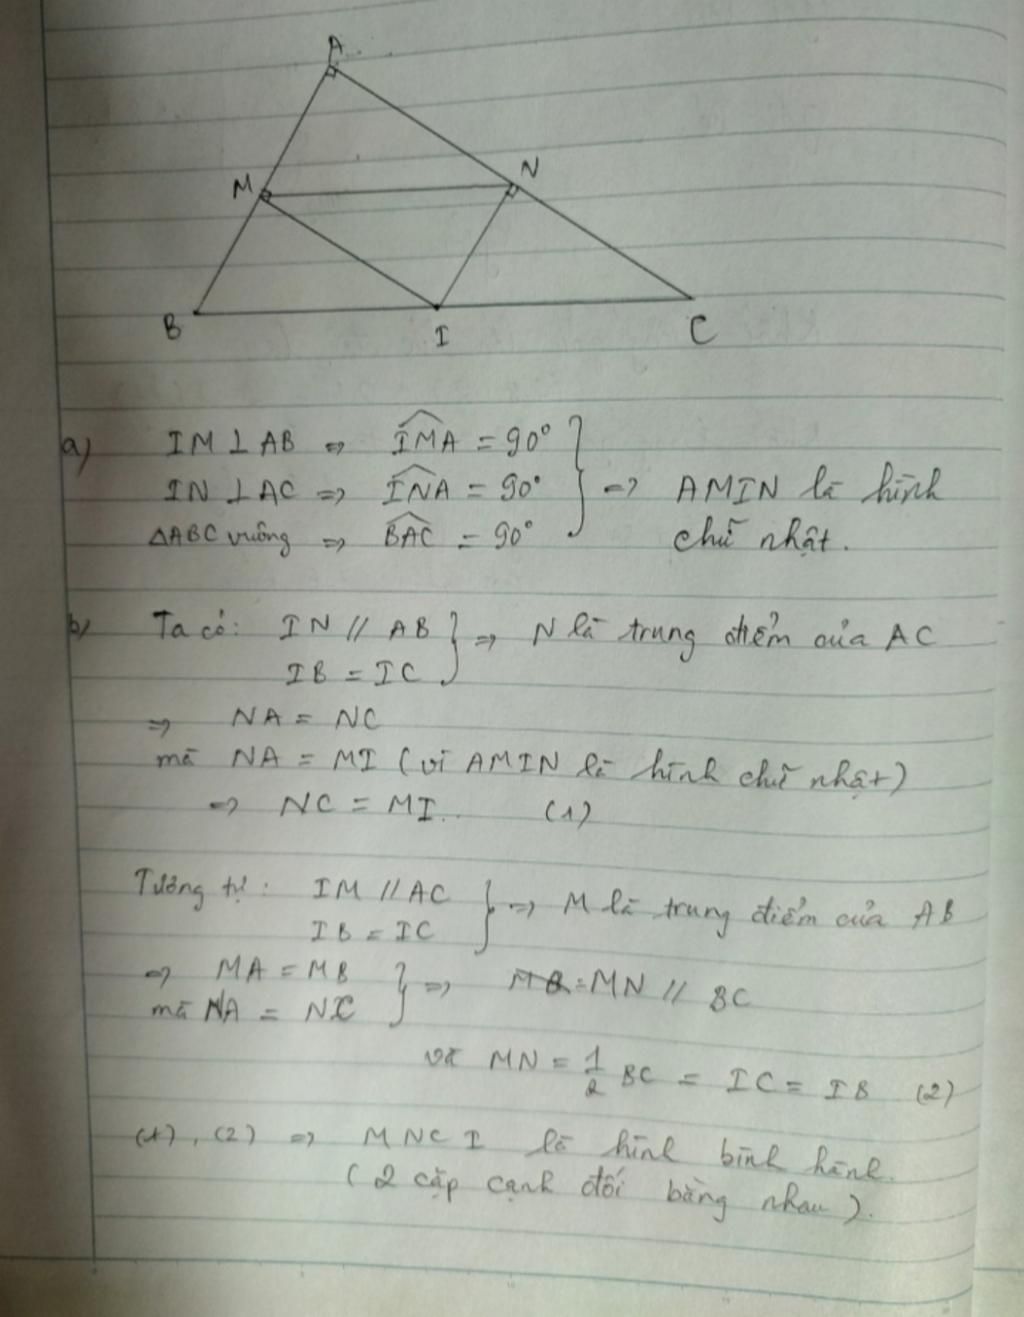 A
M
N
B
I
C
a) IM ⊥ AB ⇒ \widehat{IMA} = 90°
IN ⊥ AC ⇒ \widehat{INA} = 90° } ⇒ AMIN là hình
ΔABC vuông ⇒ \widehat{BAC} = 90° chữ nhật.
b) Ta có: IN // AB } ⇒ N là trung điểm của AC
IB = IC
⇒ NA = NC
mà NA = MI (vì AMIN là hình chữ nhật)
⇒ NC = MI.. (1)
Tương tự: IM // AC } ⇒ M là trung điểm của AB
IB = IC
⇒ MA = MB } ⇒ MN // BC
mà NA = NC
và MN = 1/2 BC = IC = IB (2)
(1), (2) ⇒ MNCI là hình bình hành.
(2 cặp cạnh đối bằng nhau).